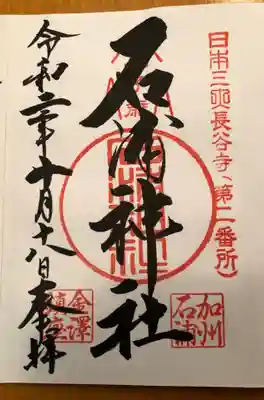 日本三大長谷寺(第二番所)
加州
石浦
石浦神社
金澤
令和二年十月十八日奉拝